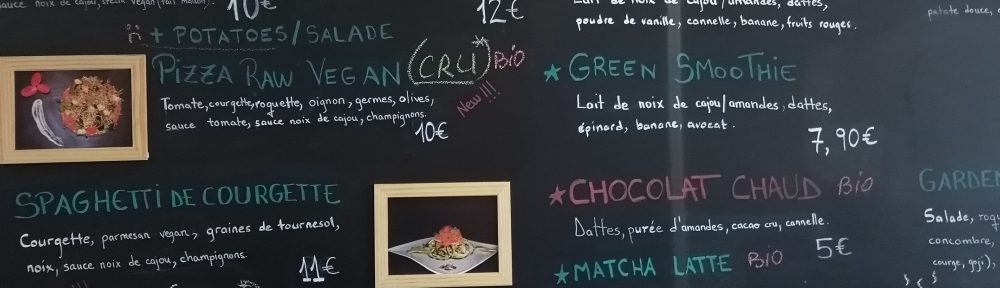 sauce noix de cajou,
10€
12€
+ POTATOES/SALADE
PIZZA RAW VEGAN (CRU)* BIO
Tomate, courgette, roquette, oignon, germes, olives,
sauce tomate, sauce noix de cajou, champignons.
New!!!
10€
SPAGHETTI DE COURGETTE
Courgette, parmesan vegan, graines de tournesol,
noix, sauce noix de cajou, champignons.
11€
Lait de noix de cajou/amandes, dattes,
poudre de vanille, cannelle, banane, fruits rouges.
★ GREEN SMOOTHIE
Lait de noix de cajou/amandes, dattes,
épinard, banane, avocat.
7,90€
★ CHOCOLAT CHAUD BIO
Dattes, purée d'amandes, cacao cru, cannelle.
5€
★ MATCHA LATTE BIO
patate douce,
GARDEN
Salade,
concombre,
courge, goji),